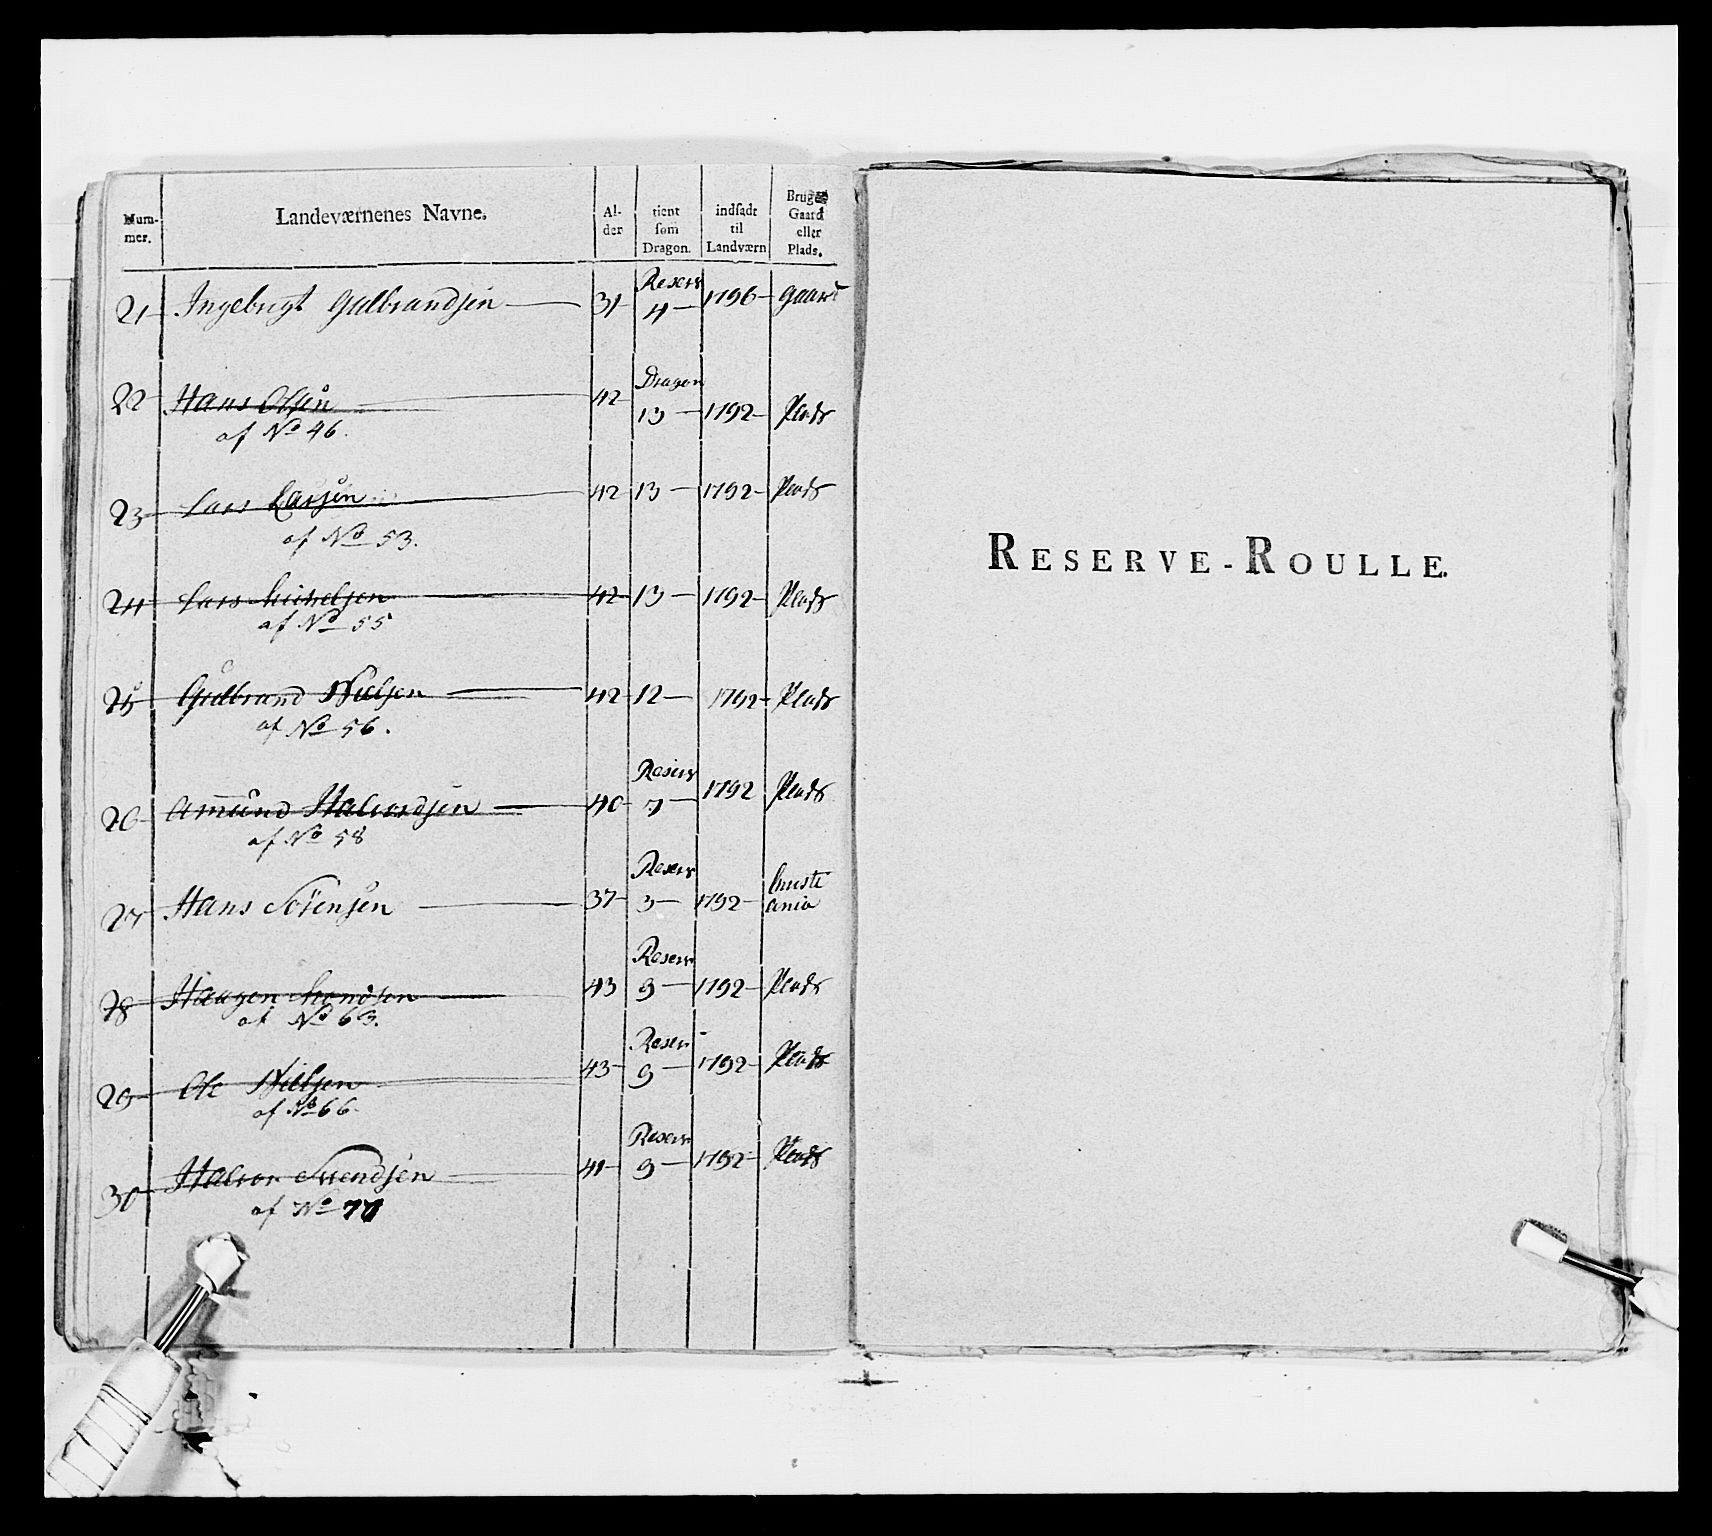 Num-
mer.
Landeværnenes Navne.
Al-
der
tient
som
Dragon.
indsadt
til
Landværn
Bruger
Gaard
eller
Plads.
21 Ingebrigt Gulbrandsen 31 Reserv 4 1796 Gaard
22 Hans Olsen 42 Dragon 13 1792 Plads
af No 46.
23 Lars Larsen 42 13 1792 Plads
af No 53.
24 Lars Michelsen 42 13 1792 Plads
af No 55
25 Gulbrand Nielsen 42 12 1792 Plads
af No 56.
26 Amund Halvordsen 40 Reserv 7 1792 Plads
af No 58
27 Hans Sörensen 37 Reserv 3 1792 Christi
ania
28 Haagen 43 Reserv 9 1792 Plads
af No 63.
29 Ole Nielsen 43 Reserv 9 1792 Plads
af No 66.
30 Halvor Svendsen 41 Reserv 9 1792 Plads
af No
RESERVE-ROULLE.